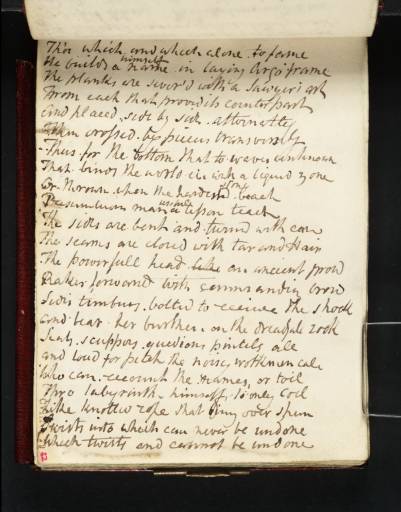 Thro which and which alone to fame
himself
He builds a name in laying Argo's frame
The Planks are sever'd with a Sawyer's art
From each that provid its counterpart
and placed side by side alternately
Then crossed by pieces transversely
Thus for the bottom that to waves unknown
That binds the world in with a liquid zone
Or thrown when the hardest beach
stone
man a lesson teach
useful
The sides are bent and turnd with care
The seams are closd with tar and Hair
The powerfull head like an ancient prow
Rakes forward with commanding brow
Side timbers bolted to receive the shock
and bear her burthen on the dreadful rock
Seats scuppers gudgeons pintels all
and loud for pitch the noisy workmen call
Who can recount the names, or toil
Thro labyrinths himself to only Coil
Like knotless rope that tiny over spun
twists into which can never be undone
which twists and cannot be undone